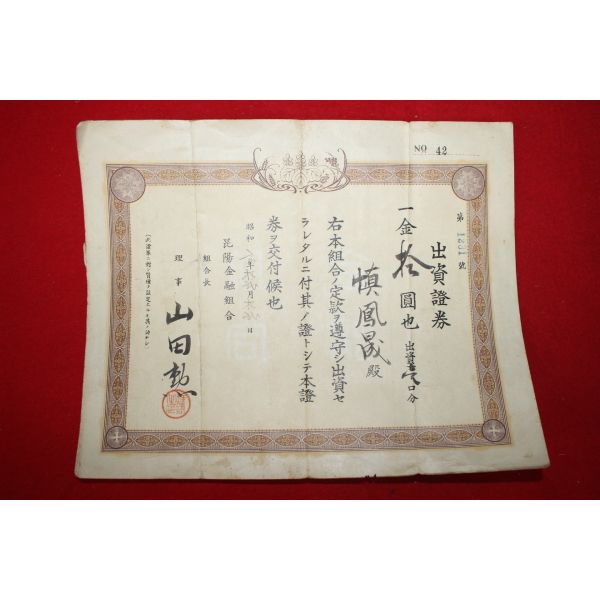 NO 42
第 1251 號
出資證券
一金拾圓也 出資壹口分
愼鳳晟殿
右本組合ノ定款ヲ遵守シ出資セ
ラレタルニ付其ノ證トシテ本證
券ヲ交付候也
昭和 年 月 日
昆陽金融組合
組合長
理事 山田勲